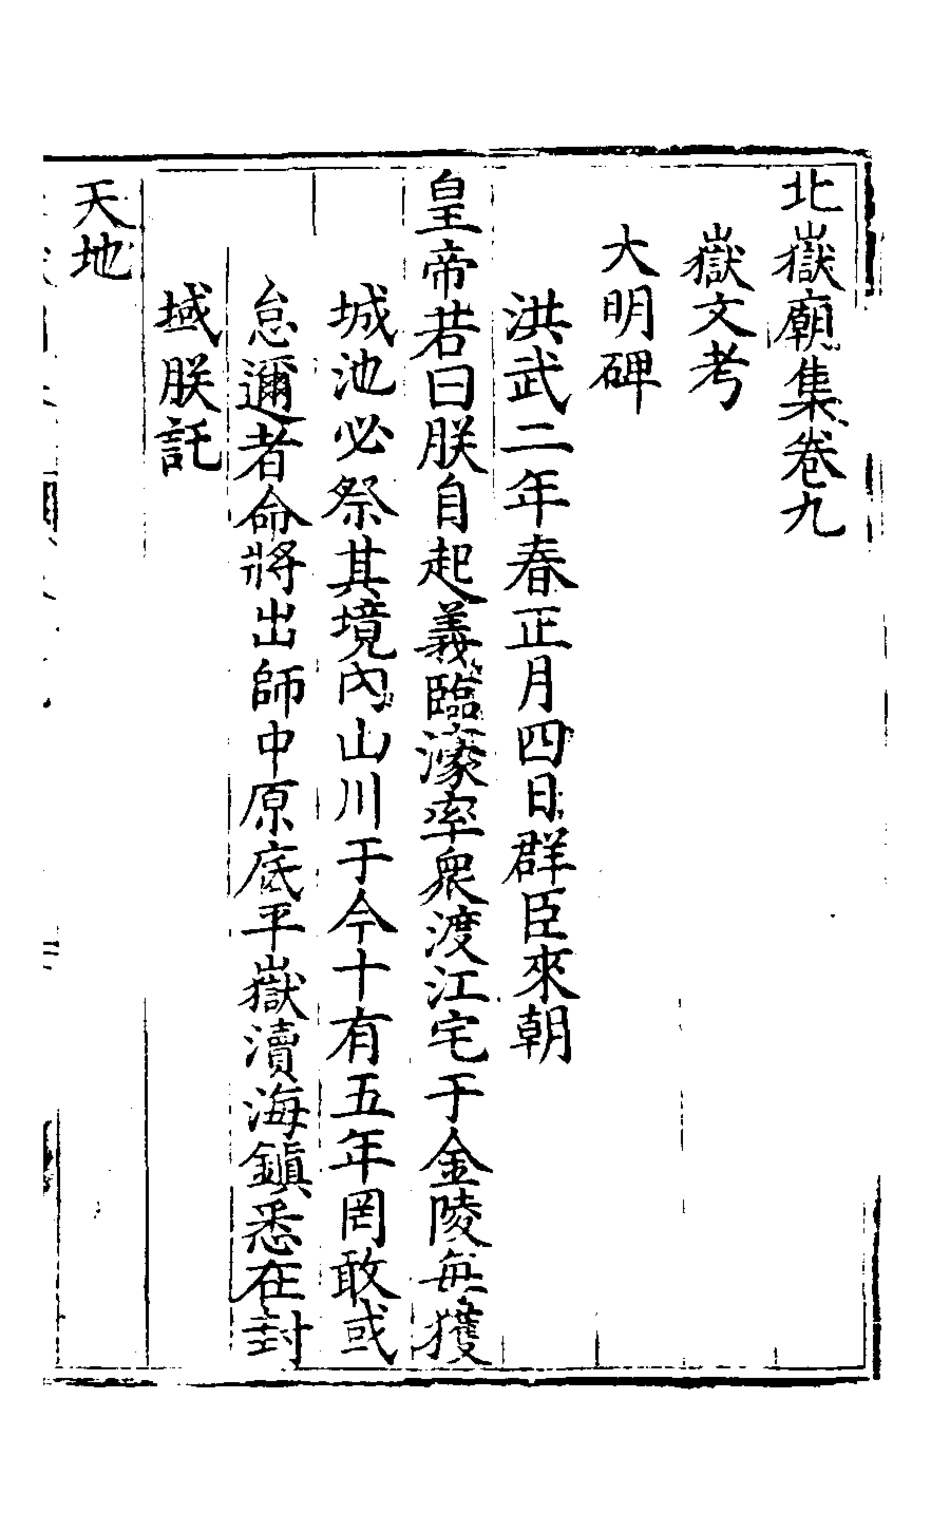 北嶽廟集卷九
嶽文考
大明碑
洪武二年春正月四日群臣來朝
皇帝若曰朕自起義臨濠率衆渡江宅于金陵每獲
城池必祭其境內山川于今十有五年罔敢或
怠邇者命將出師中原底平嶽瀆海鎮悉在封
域朕託
天地